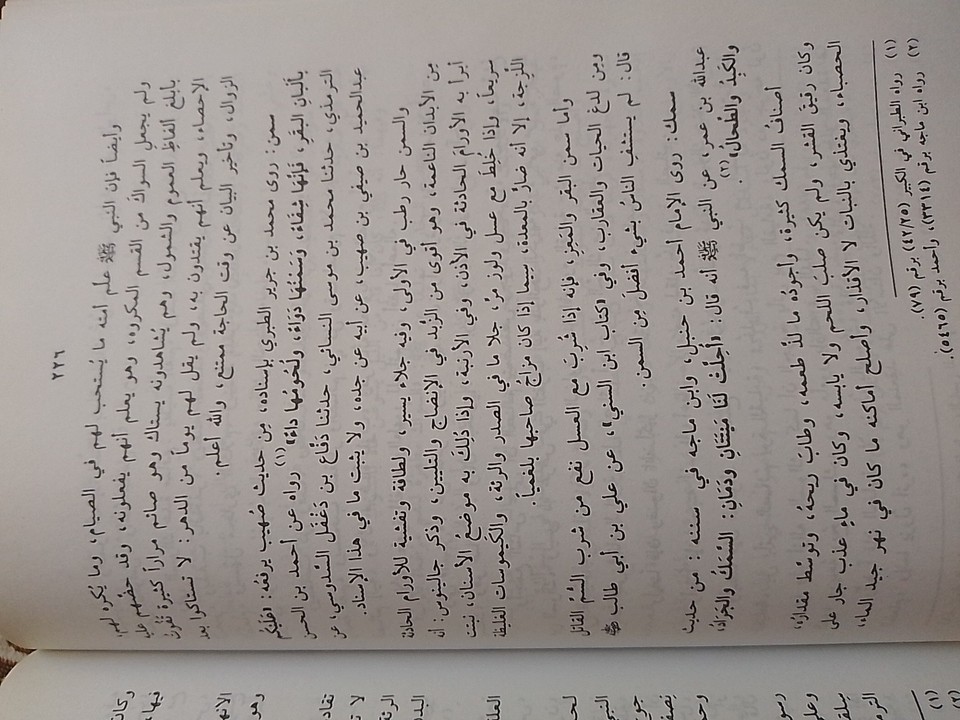 ٢٢٦
وأيضاً فإن النبي ﷺ علَّم أمته ما يُستحب لهم في الصيام: وما يكره لهم،
ولم يجعل السواك من القسم المكروه، وهو يعلم أنهم يفعلونه، وقد حضّهم عليه
بأبلغ ألفاظ العموم والشمول، وهم يُشاهدونه يستاك وهو صائم مراراً كثيرة تَفُوتُ
الإحصاء، ويعلم أنهم يقتدون به، ولم يقل لهم يوماً من الدهر: لا تستاكوا بعد
الزوال، وتأخير البيان عن وقت الحاجة ممتنع، والله أعلم.
سمن: روى محمد بن جرير الطبري بإسناده، مِن حديث صُهيب يرفعُه: «عَلَيْكُم
بِأَلْبَانِ البَقَرِ، فَإِنَّهَا شِفَاءٌ، وَسَمْنُهَا دَوَاءٌ، ولُحُومُها دَاءٌ» (١) رواه عن أحمد بن الحسن
الترمذي، حدثنا محمد بن موسى النسائي، حدثنا دَفَّاع بن دَغْفَلٍ السَّدوسي، عن
عبدالحميد بن صيفي بن صهيب، عن أبيه عن جده، ولا يثبت ما في هذا الإسناد.
والسمن حار رطب في الأولى، وفيه جلاء يسير، ولطافة وتفشية للأورام الحادثة
مِن الأبدان الناعمة، وهو أقوى من الزُّبد في الإنضاج والتليين، وذكر جالينوس: أنه
أبرأ به الأورام الحادثة في الأذن، وفي الأرنبة، وإذا دُلِكَ به موضعُ الأسنان، نبتت
سريعاً، وإذا خُلِطَ مع عسل ولوز مرٍّ، جلا ما في الصدر والرئة، والكَيموسات الغليظة
اللَّزِجة، إلا أنه ضارٌ بالمعدة، سِيما إذا كان مزاجُ صاحبها بلغمياً.
وأما سمن البقر والمَعِز، فإنه إذا شُرِبَ مع العسل نفع من شرب السُّم القاتل
ومِن لدغ الحيات والعقارب، وفي «كتاب ابن السني»، عن علي بن أبي طالب ﷺ
قال: لم يستشفِ الناسُ بشيء أفضلَ مِن السمن.
سمك: روى الإمام أحمد بن حنبل، وابن ماجه في سننه: من حديث
عبدالله بن عمر، عن النبي ﷺ أنه قال: «أُحِلَّتْ لَنَا مَيْتَتَانِ ودَمَانِ: السَّمَكُ والجَرَادُ،
والكَبِدُ والطِّحَالُ» (٢).
أصنافُ السمك كثيرة، وأجودُه ما لذَّ طعمه، وطابَ ريحُه، وتوسَّط مقدارُه،
وكان رقيقَ القشر، ولم يكن صلبَ اللحم ولا يابسه، وكان في ماءٍ عذب جارٍ على
الحصباء، ويغتذي بالنبات لا الأقذار، وأصلح أماكنه ما كان في نهر جيد الماء،
(١) رواه الطبراني في الكبير (٤٢/٢٥) برقم (٧٩).
(٢) رواه ابن ماجه برقم (٣٣١٤)، وأحمد برقم (٥٤٦٥).